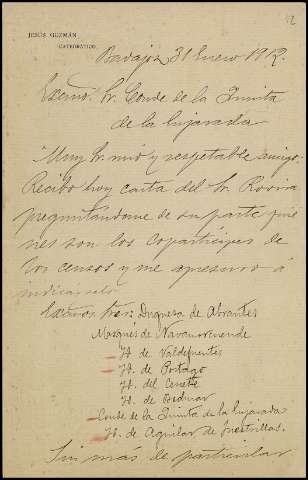 JESÚS GUZMÁN
CATEDRÁTICO
Badajoz 31 Enero 1912.
Excmo. Sr. Conde de la Quinta
de la Enjarada
Muy Sr. mío y respetable amigo:
Recibo hoy carta del Sr. Rovira
preguntándome de su parte quié
nes son los copartícipes de
los censos y me apresuro á
indicárselo
Excmos. Sres: Duquesa de Abrantes
Marqués de Navamorcuende
Id. de Valdefuentes
Id. de Portago
Id. del Cenete
Id. de Bedmar
Conde de la Quinta de la Enjarada
Id. de Aguilar de Inestrillas.
Sin mas de particular